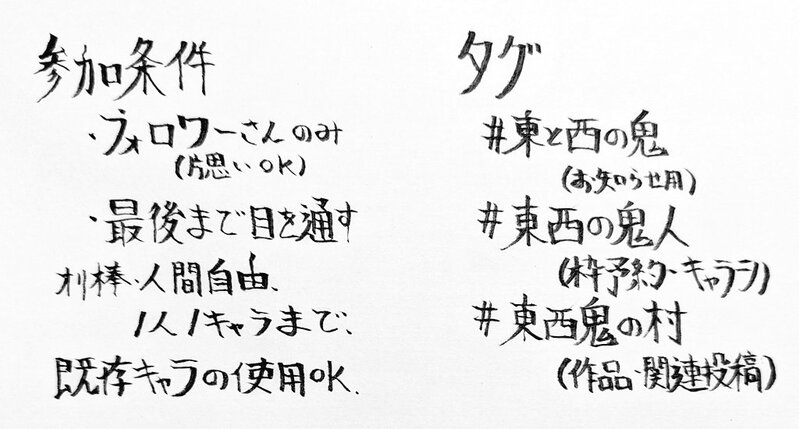 参加条件
・フォロワーさんのみ
(片思いOK)
・最後まで目を通す
オリ棒・人間自由、
1人1キャラまで、
既存キャラの使用OK.
タグ
#東と西の鬼
(お知らせ用)
#東西の鬼人
(枠予約・キャラシ)
#東西鬼の村
(作品・関連投稿)